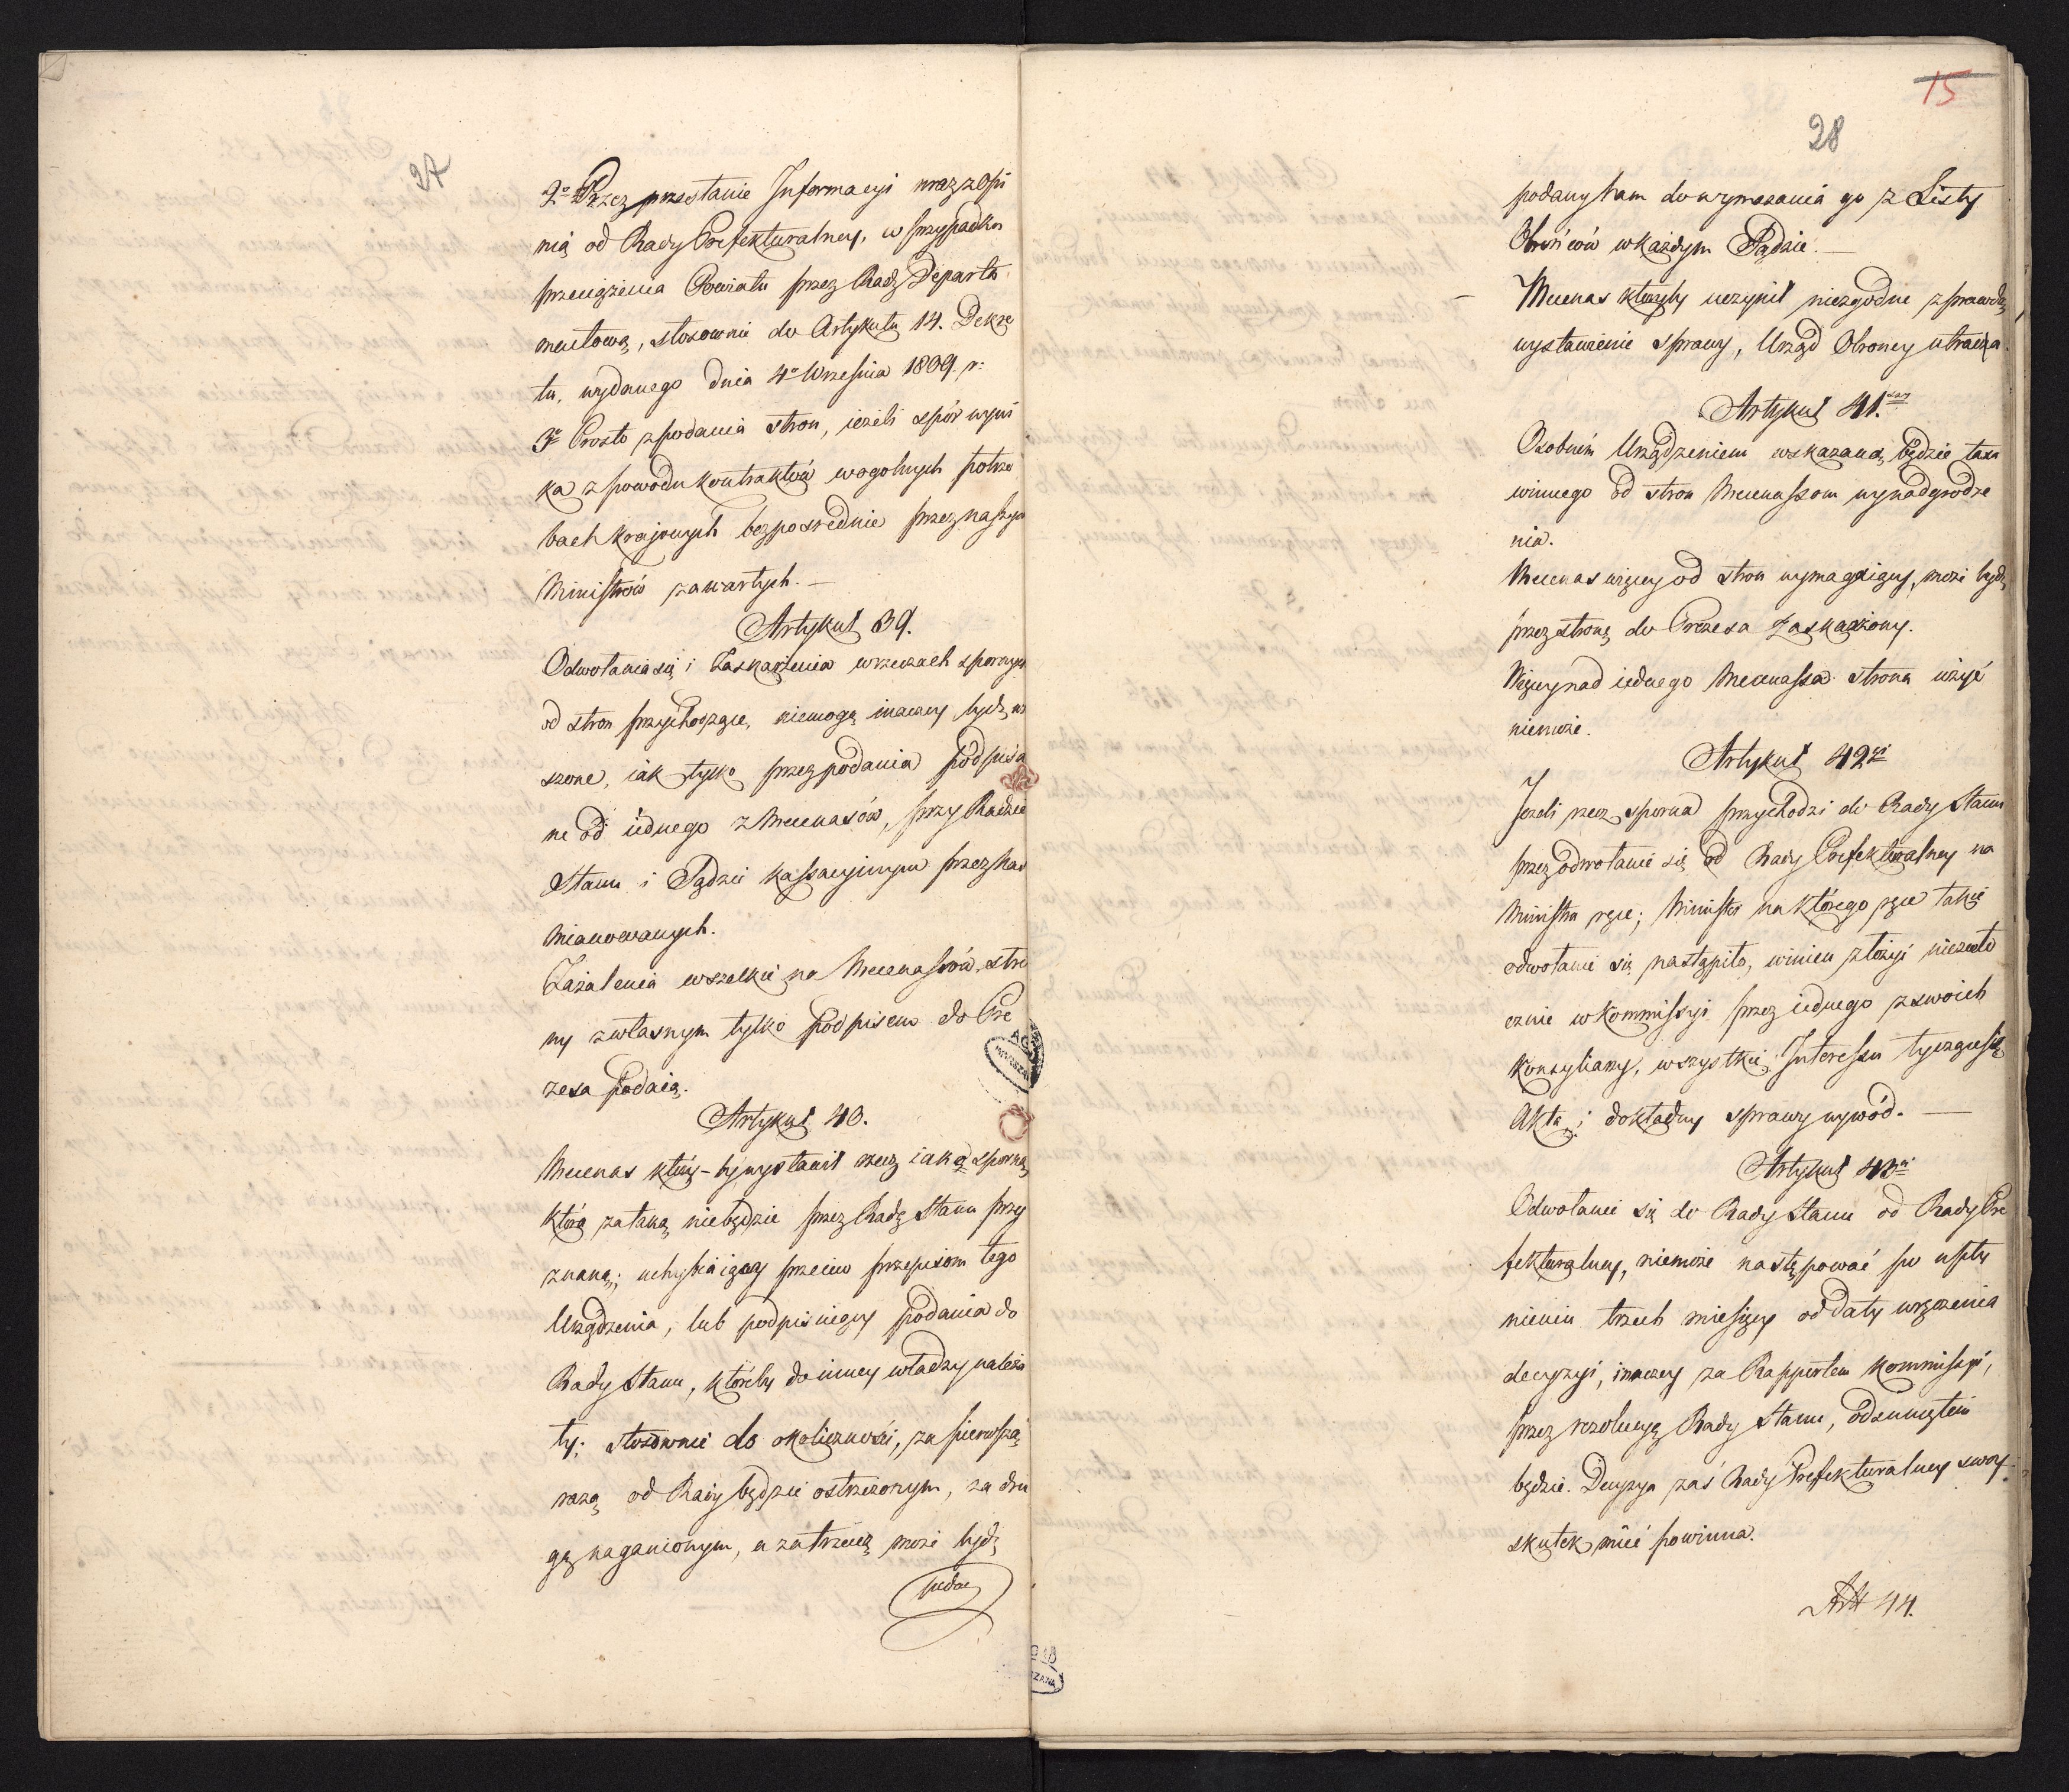 27
2º Przez przesłanie Informacyi wraz z Opi
nią od Rady Prefekturalney, w przypadku
przeciążenia Powiatu przez Radę Departa
mentową, stosownie do Artykułu 14. Dekre
tu, wydanego dnia 4º Września 1809. r:
3º Prosto z podania stron, ieżeli spór wyni
ka z powodu kontraktów w ogolnych potrze
bach krajowych bezpośrednie przez naszych
Ministrów zawartych. —
Artykuł 39.
Odwołania się i Zaskarżenia w rzeczach spornych
od stron przychodzące, niemogą inaczey bydź wno
szone, iak tylko przez podania podpisa
ne od iednego z Mecenasów, przy Radzie
Stanu i Sądzie Kassacyinym przez Nas
Mianowanych.
Zażalenia wszelkie na Mecenassów, stro
ny z własnym tylko podpisem do Pre
zesa podaią.
Artykuł 40.
Mecenas który-by wystawił rzecz iako sporną,
która za taką niebędzie przez Radę Stanu przy
znaną; uchybiaiący przeciw przepisom tego
Urządzenia, lub podpisuiący podania do
Rady Stanu, któreby do inney władzy należa
ły; stosownie do okoliczności, za pierwszą
razą od Rady będzie ostrzeżonym, za dru
gą naganionym, a za trzecią może bydź
podany
15
28
podanym nam do wymazania go z Listy
Obrońców w każdym Sądzie. —
— Mecenas któryby uczynił niezgodne z prawdą
wystawienie sprawy, Urząd Obroncy utraca.
Artykuł 41.szy
Osobnem Urządzeniem wskazaną będzie taxa
winnego od stron Mecenassom wynadgrodze
nia.
Mecenas więcey od stron wymagaiący, może bydź
przez stronę do Prezesa Zaskarżony.
Więcey nad iednego Mecenassa strona użyć
niemoże.
Artykuł 42gi
Jeżeli rzecz sporna przychodzi do Rady Stanu
przez odwołanie się od Rady Prefekturalney na
Ministra ręce; Minister na którego ręce takie
odwołanie się nastąpiło, winien złożyć niezwło
cznie w Kommissyi przez iednego z swoich
Konsyliarzy, wszystkie Interessu tyczące się
Akta, i dokładny sprawy wywód. —
Artykuł 43ci
Odwołanie się do Rady Stanu od Rady Pre
fekturalney, niemoże następować po upły
nieniu trzech miesięcy od daty wręczenia
decyzyi, inaczey za Rapportem Kommissyi,
przez rezolucyą Rady Stanu, odsuniętem
będzie. Decyzya zaś Rady Prefekturalney swoy
skutek mieć powinna.
Art 44.